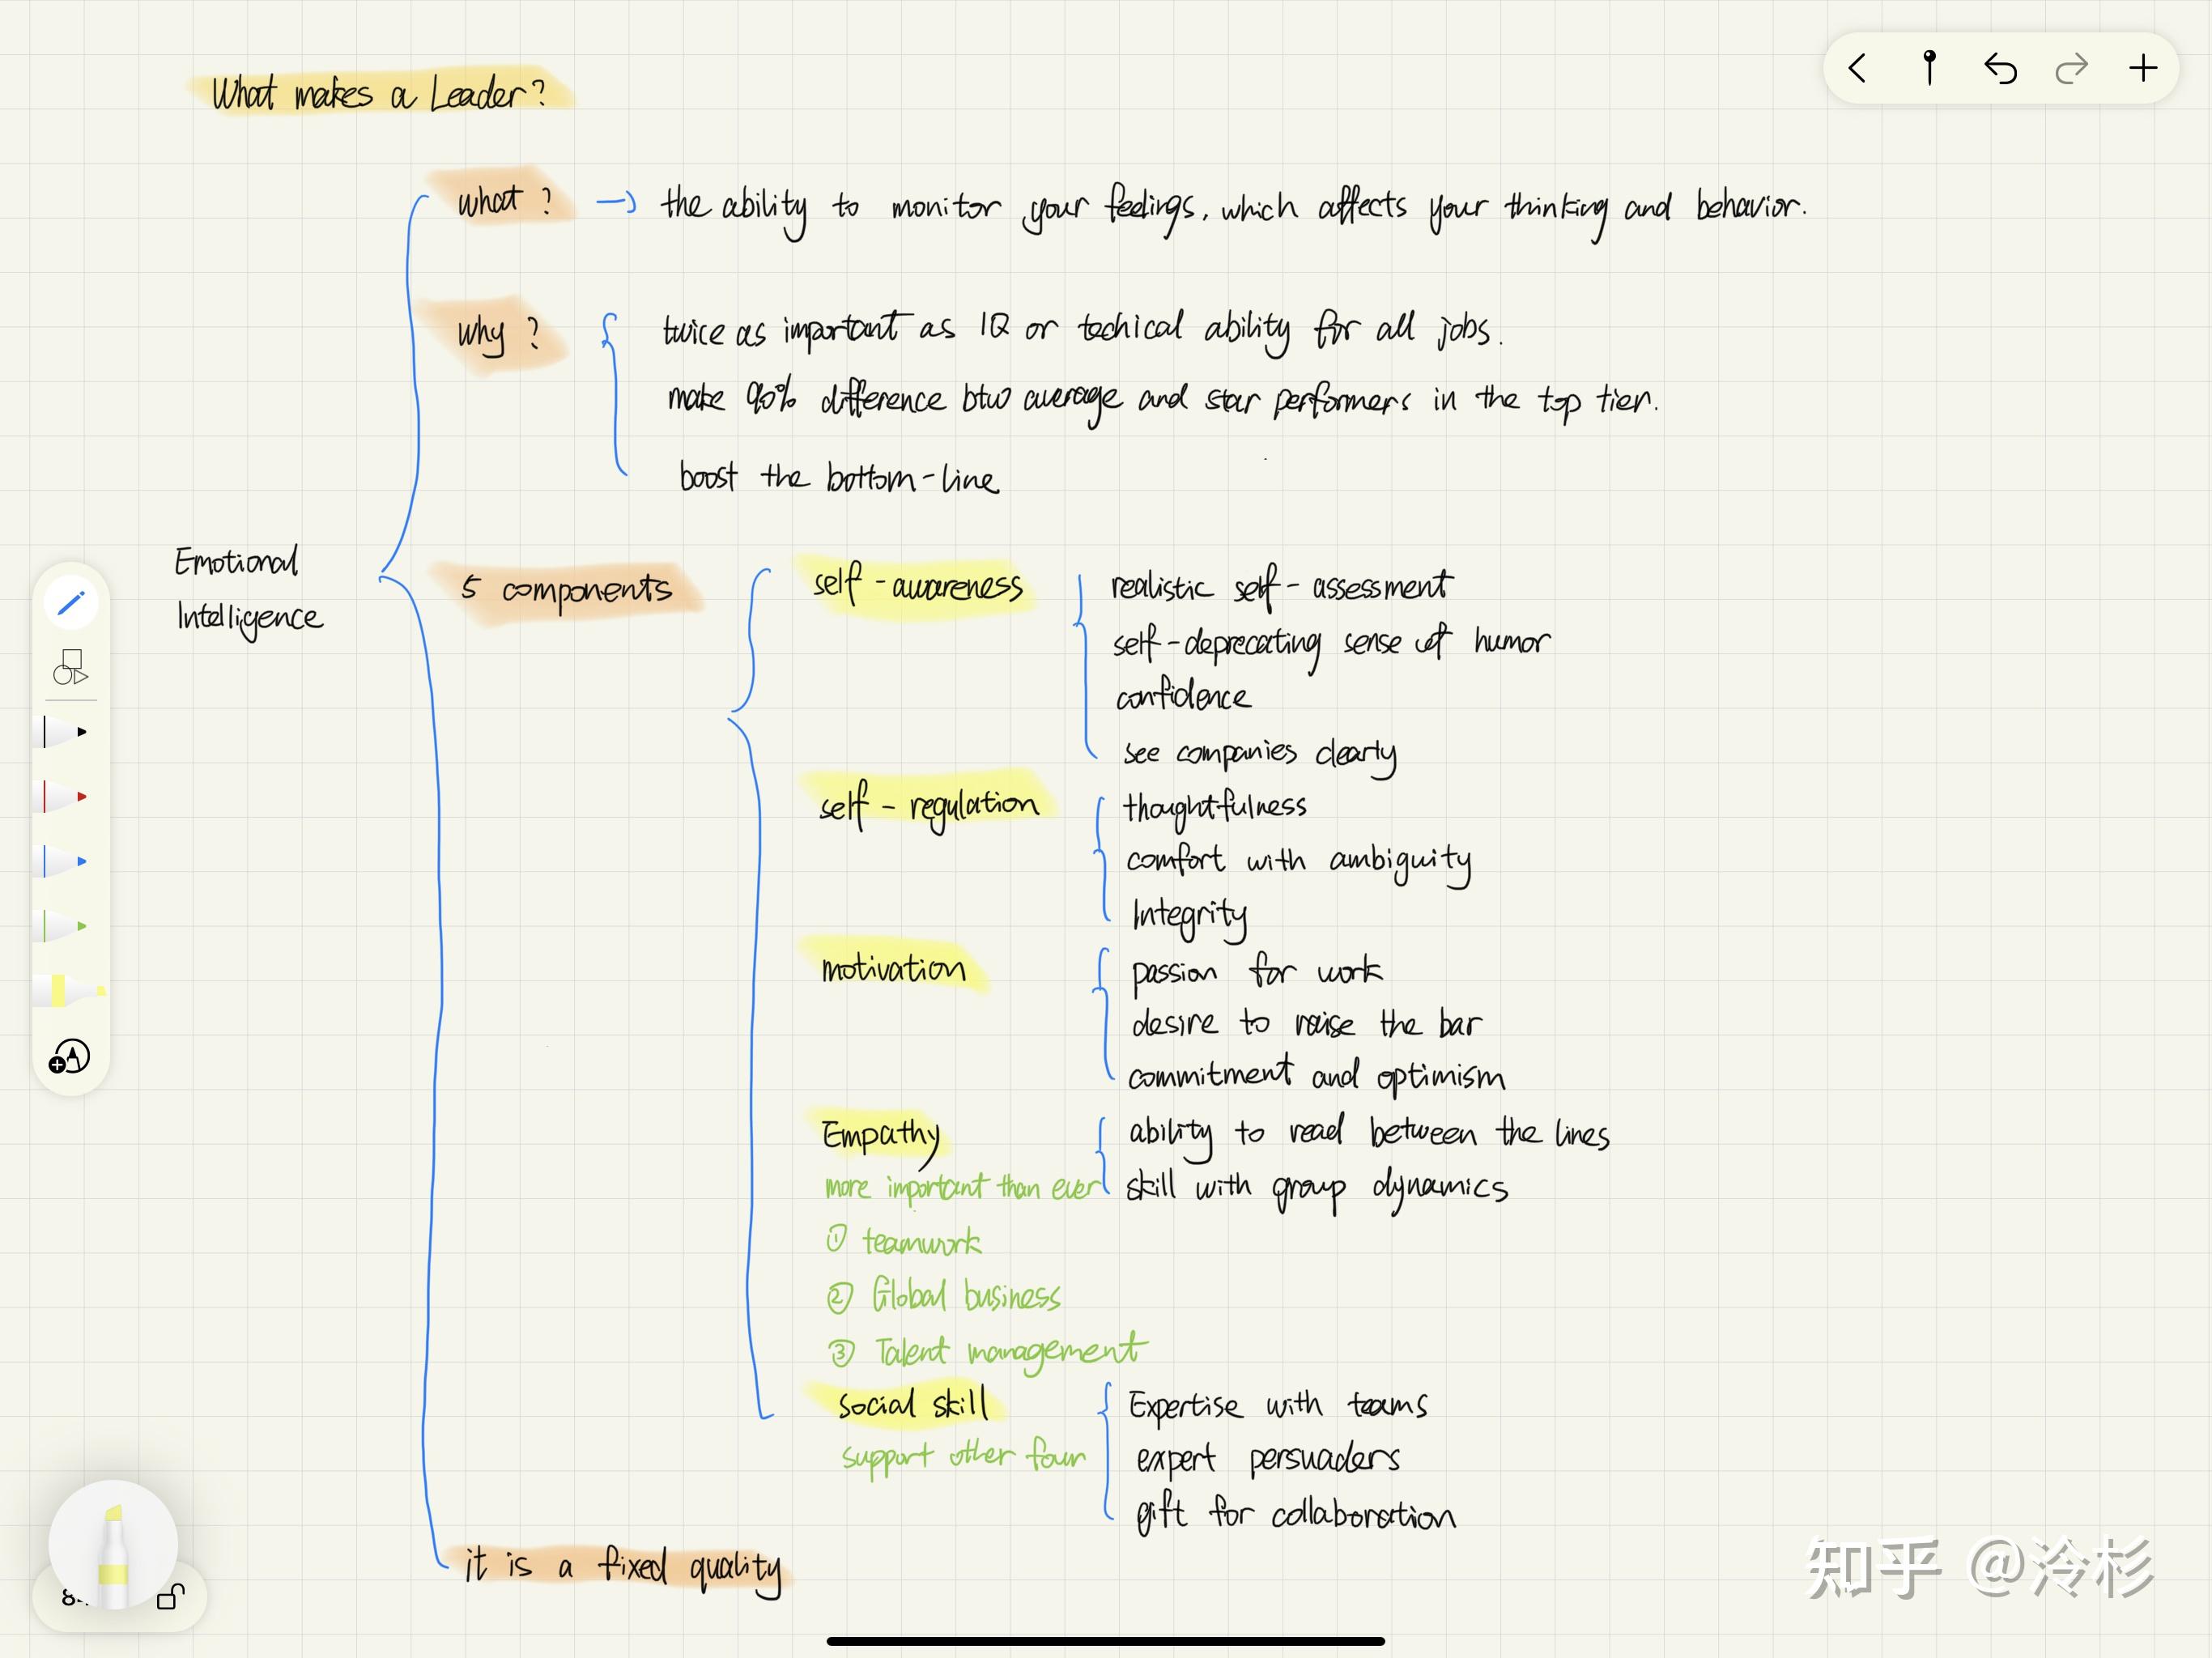 What makes a Leader?
what? → the ability to monitor your feelings, which affects your thinking and behavior.
why? twice as important as IQ or techical ability for all jobs.
make 90% difference btw average and star performers in the top tier.
boost the bottom-line
Emotional
Intelligence
5 components
self-awareness
realistic self-assessment
self-deprecating sense of humor
confidence
see companies clearly
self-regulation
thoughtfulness
comfort with ambiguity
Integrity
motivation
passion for work
desire to raise the bar
commitment and optimism
Empathy
ability to read between the lines
more important than ever
skill with group dynamics
① teamwork
② Global business
③ Talent management
social skill
Expertise with teams
support other four
expert persuaders
gift for collaboration
it is a fixed quality
知乎 @泠杉